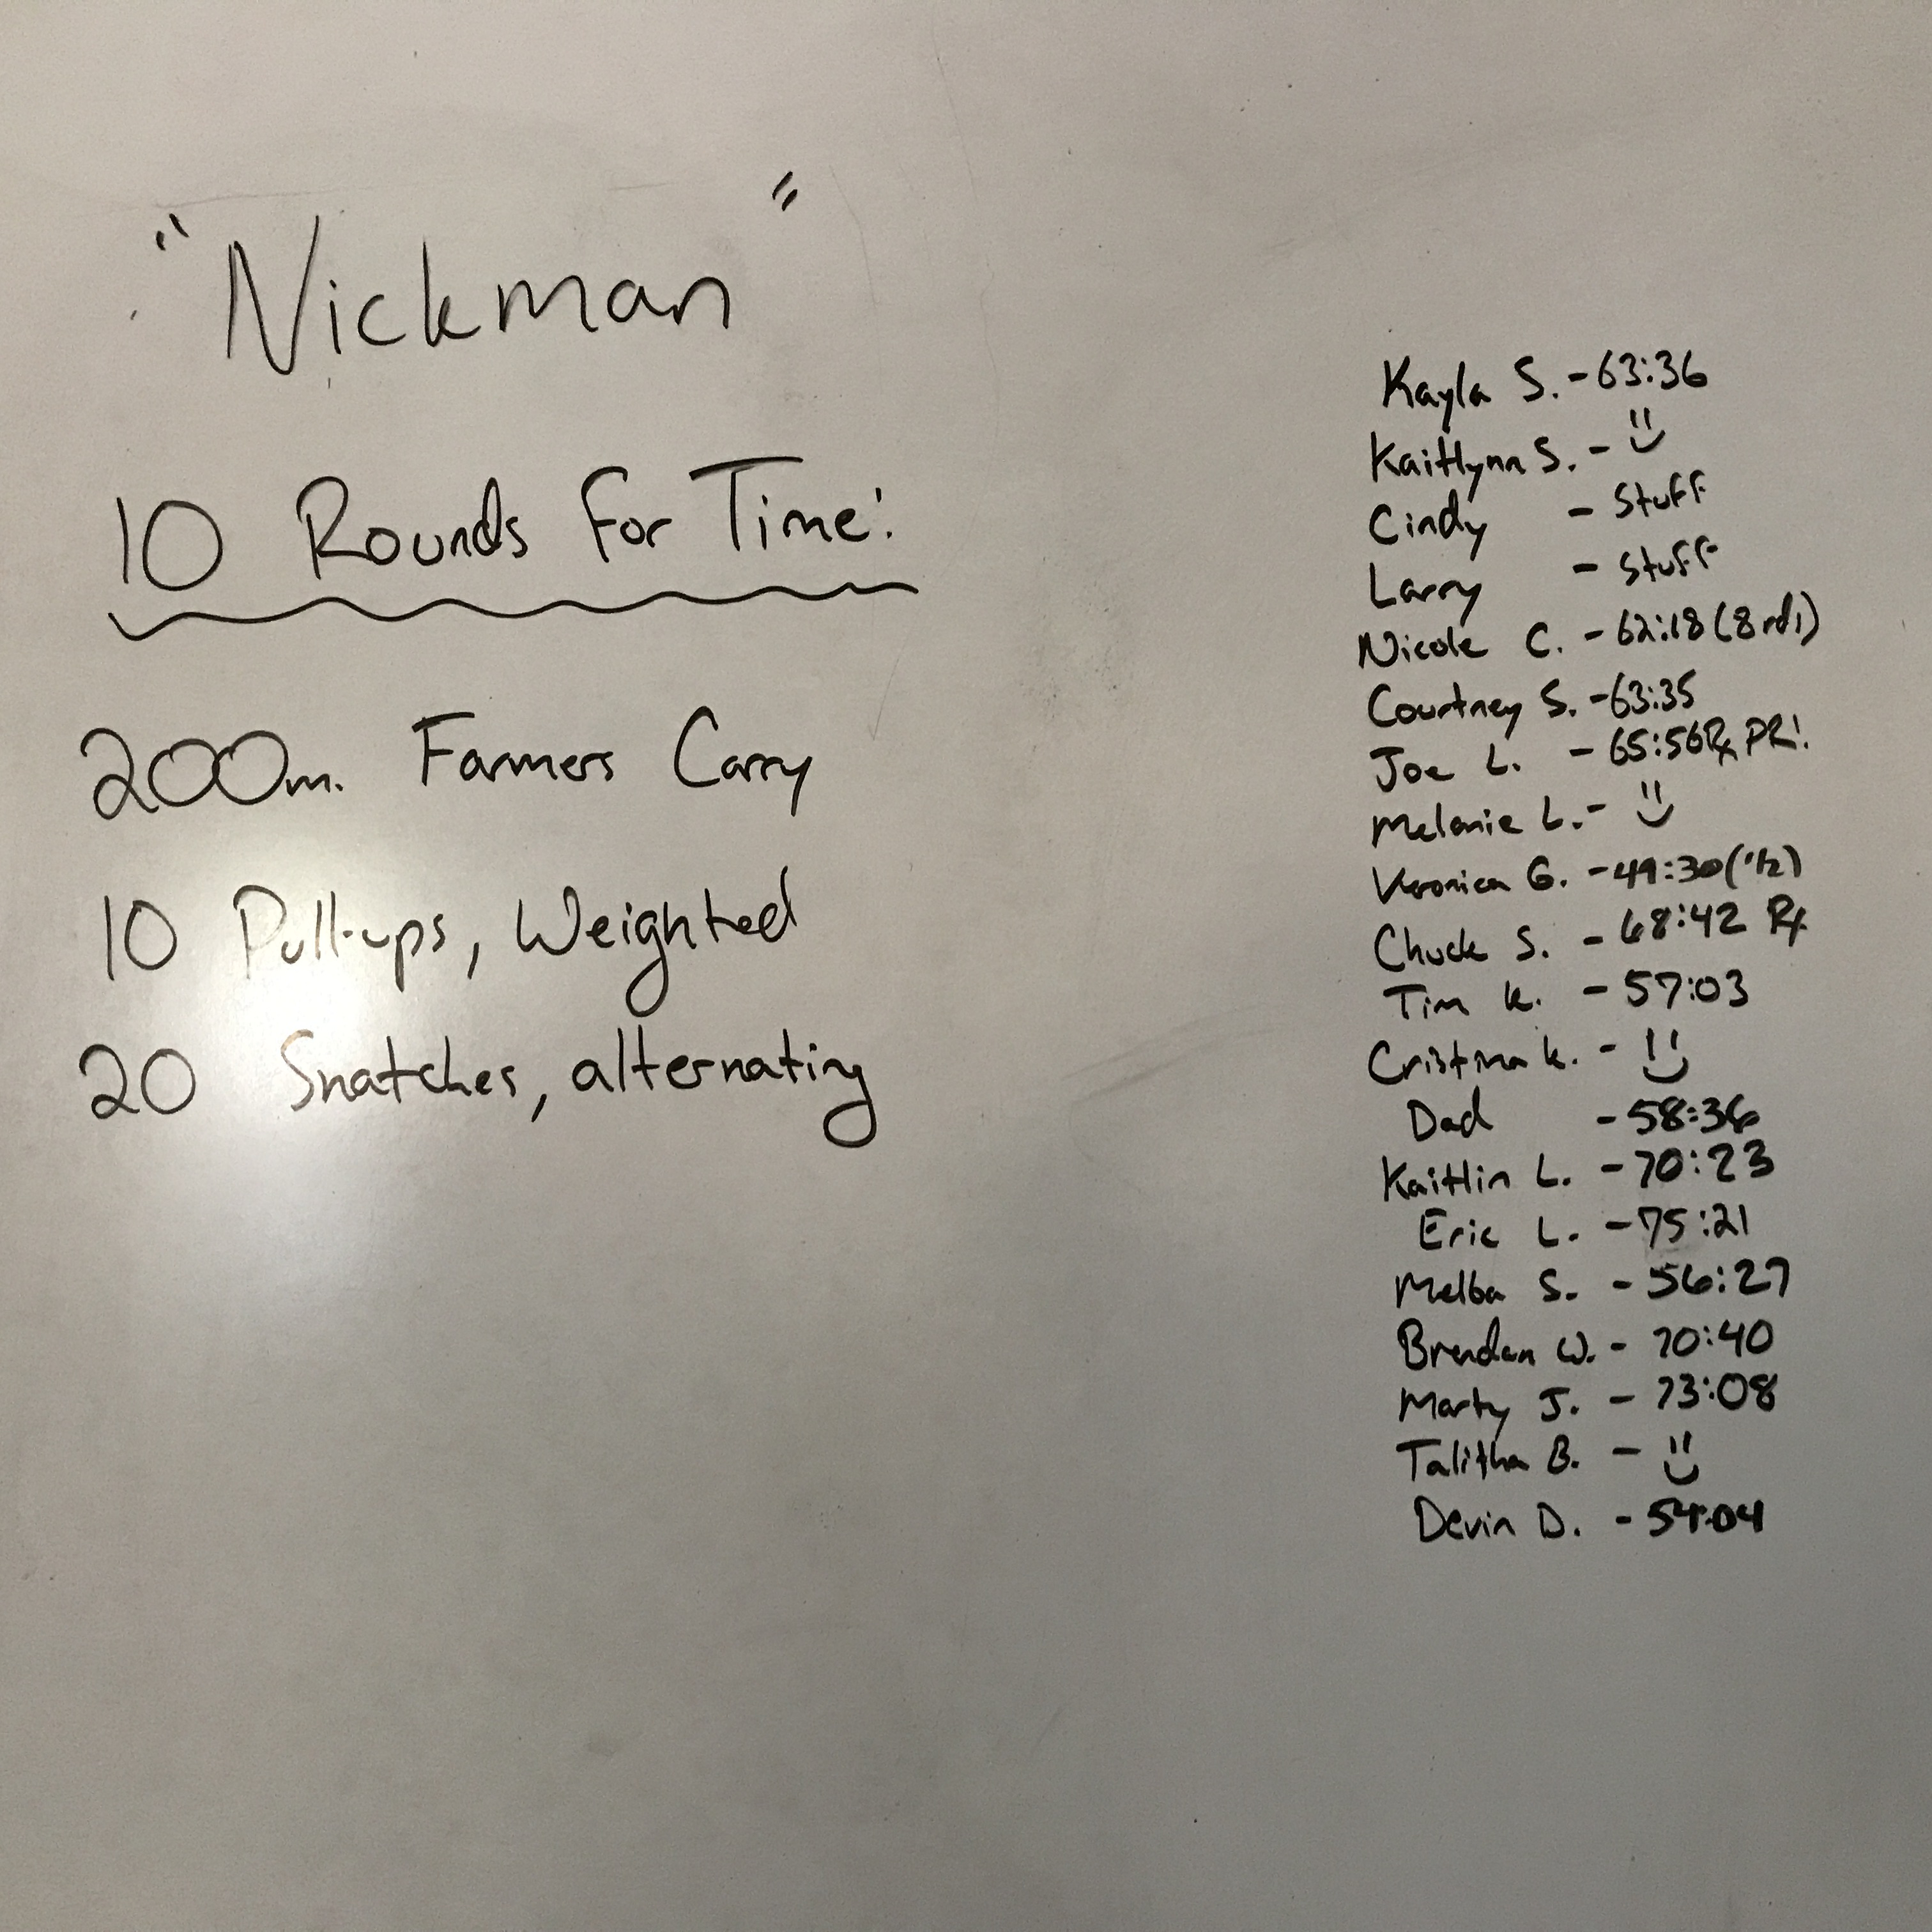 "Nickman"
10 Rounds For Time:
200m. Farmers Carry
10 Pull-ups, Weighted
20 Snatches, alternating
Kayla S. - 63:36
Kaitlynn S. - :)
Cindy - Stuff
Larry - Stuff
Nicole C. - 62:18 (8 rds)
Courtney S. - 63:35
Joe L. - 65:56 Rx PR!
Melanie L. - :)
Veronica G. - 49:30 (1/2)
Chuck S. - 68:42 Rx
Tim K. - 57:03
Cristina K. - :)
Dad - 58:36
Kaitlin L. - 70:23
Eric L. - 75:21
Melba S. - 56:27
Brendan W. - 70:40
Marty J. - 73:08
Talitha B. - :)
Devin D. - 54:04